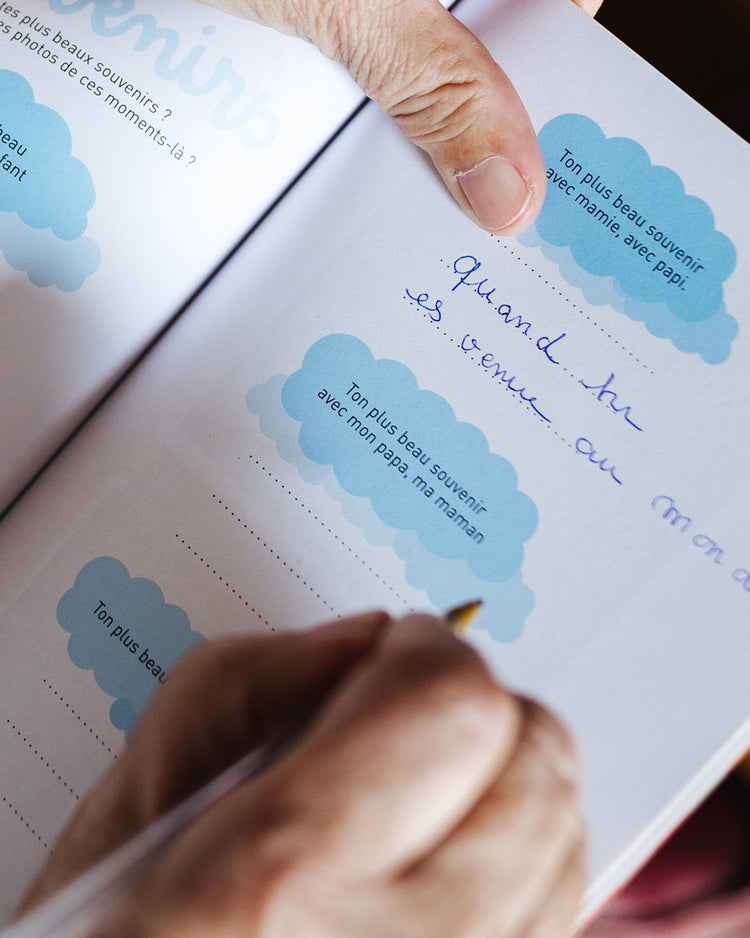 venirs
tes plus beaux souvenirs ?
es photos de ces moments-là ?
beau
fant
Ton plus beau souvenir
avec mamie, avec papi.
quand tu
es venue au mond
Ton plus beau souvenir
avec mon papa, ma maman
Ton plus beau